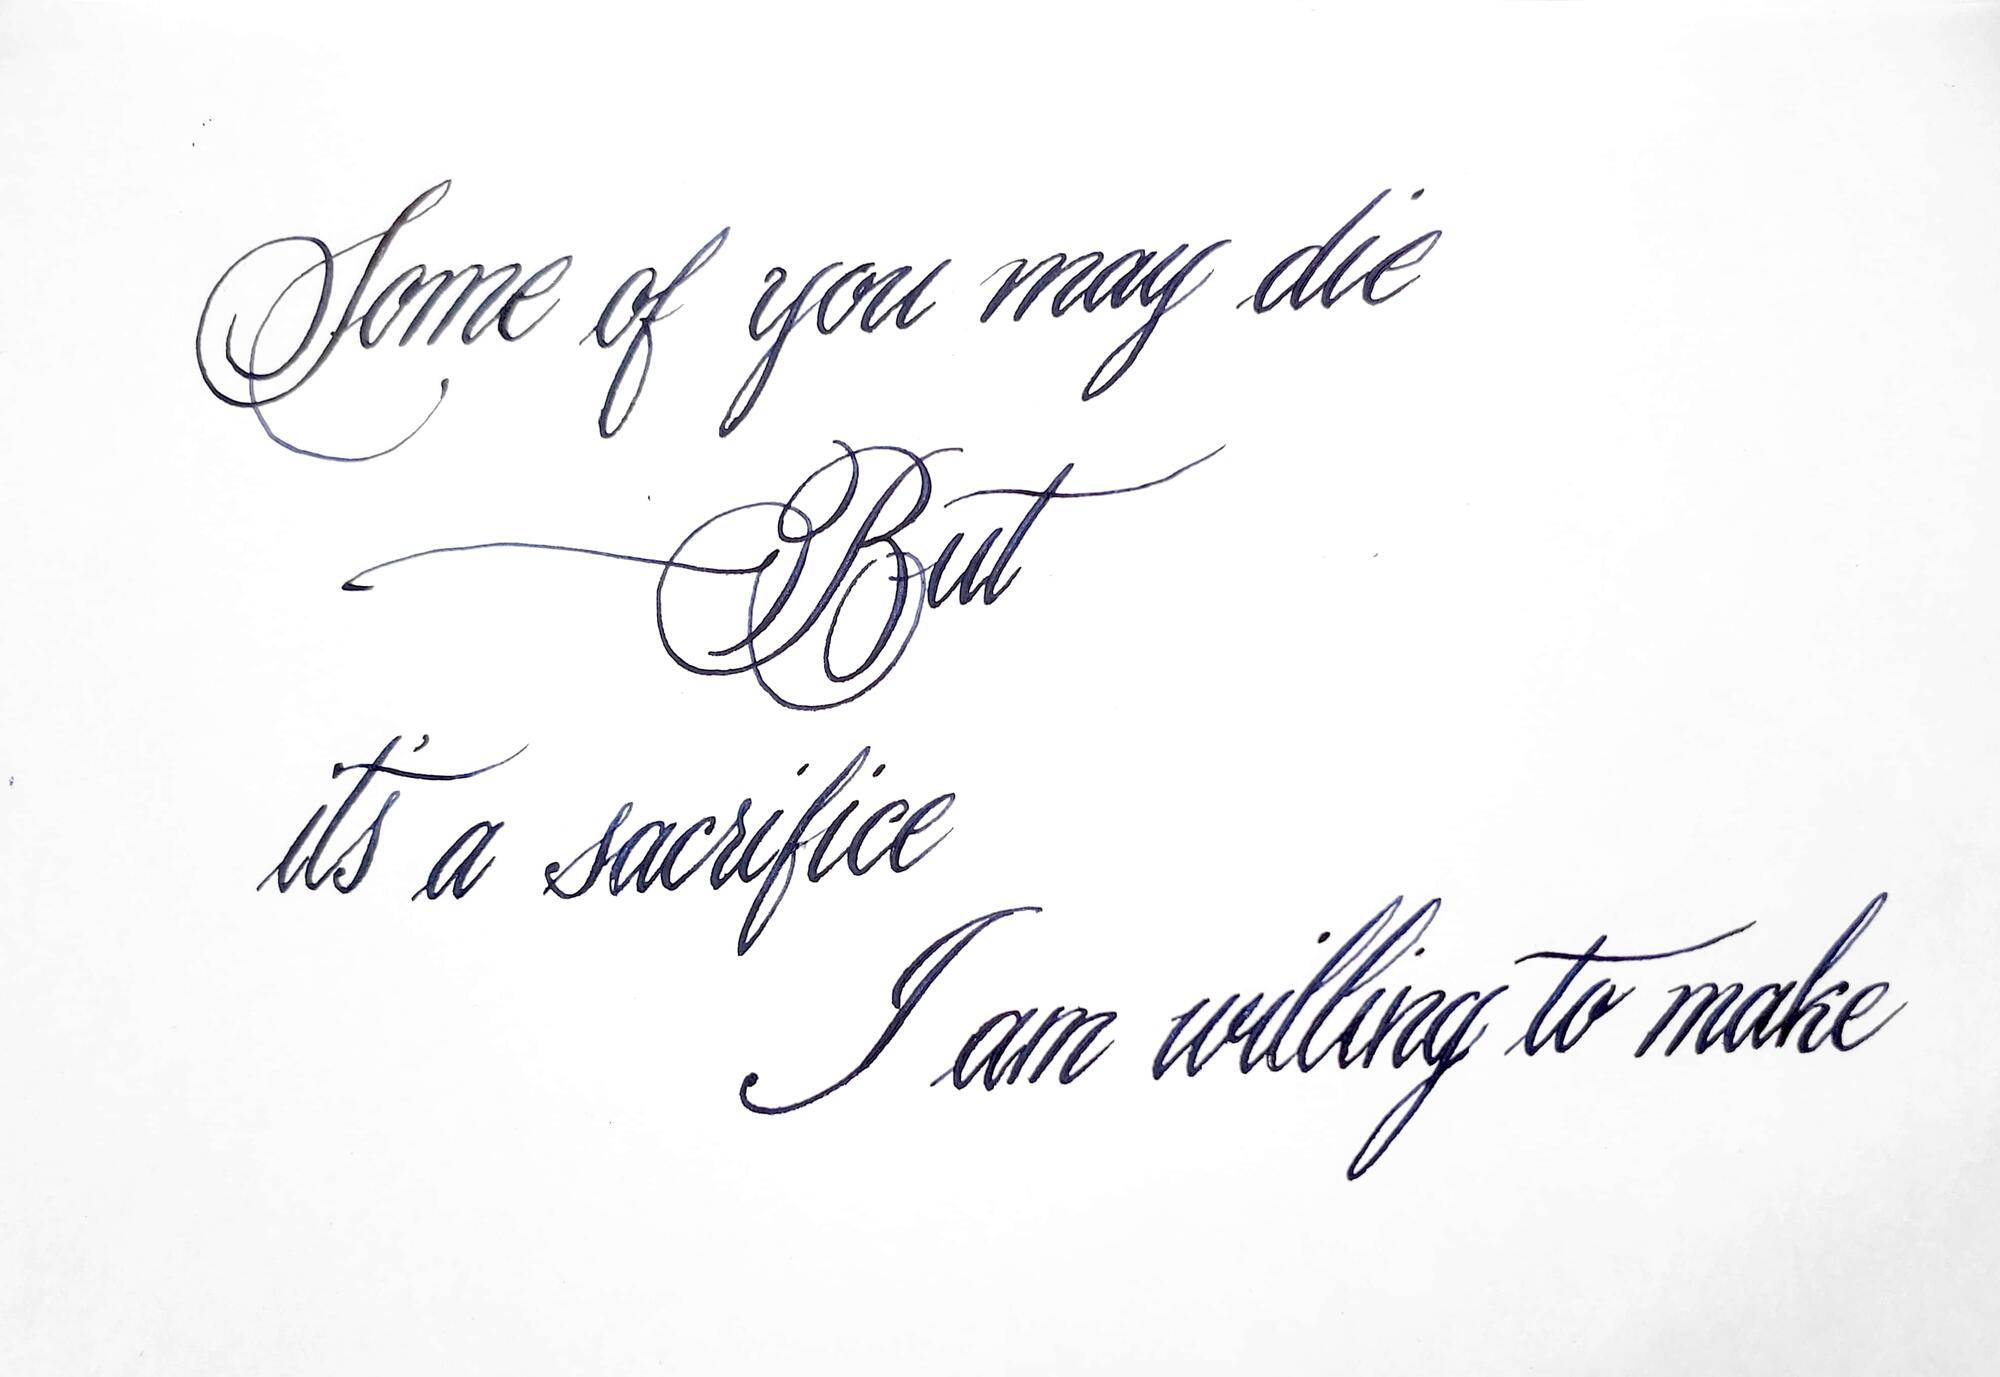 Some of you may die
But
it's a sacrifice
I am willing to make